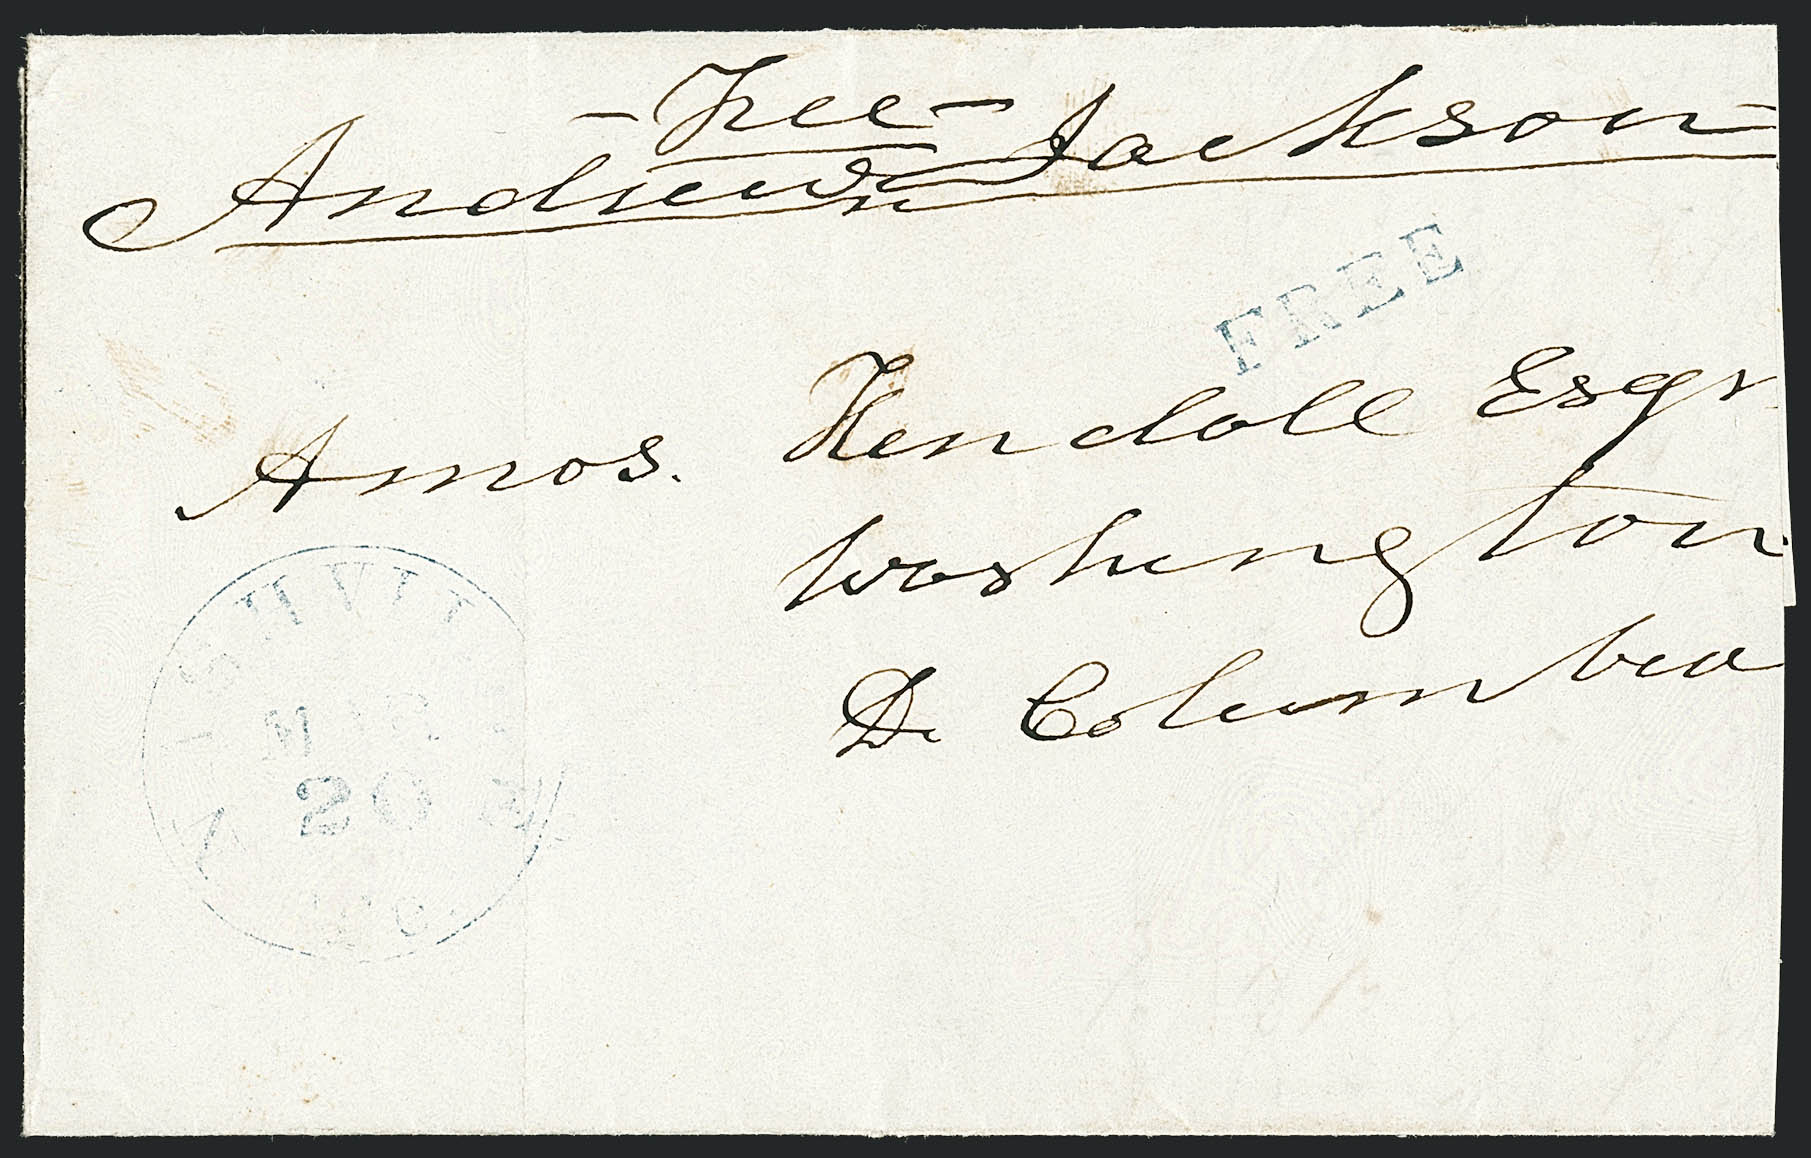 - Free -
Andrew Jackson
FREE
Amos. Kendall Esqr
Washington
D. Columbia
SHVIL
MAR
20